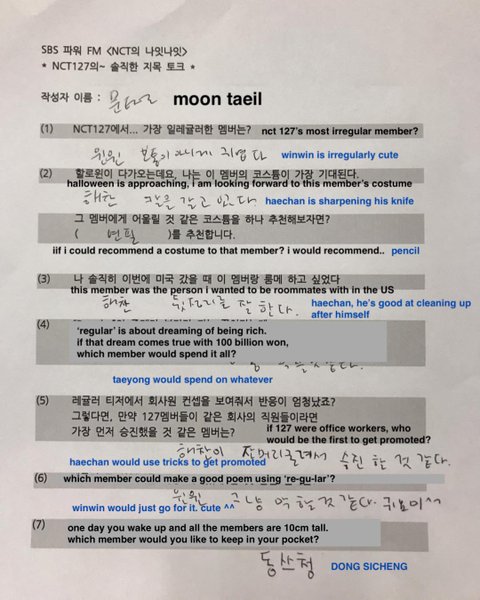 SBS 파워 FM <NCT의 나잇나잇>
* NCT127의~ 솔직한 지목 토크 *
작성자 이름 : 문태일 moon taeil
(1) NCT127에서... 가장 일레귤러한 멤버는? nct 127's most irregular member?
윈윈 보통이 아니게 귀엽다 winwin is irregularly cute
(2) 할로윈이 다가오는데요, 나는 이 멤버의 코스튬이 가장 기대된다.
halloween is approaching, i am looking forward to this member's costume
해찬 칼을 갈고 있다 haechan is sharpening his knife
그 멤버에게 어울릴 것 같은 코스튬을 하나 추천해보자면?
( 연필 )를 추천합니다.
iif i could recommend a costume to that member? i would recommend.. pencil
(3) 나 솔직히 이번에 미국 갔을 때 이 멤버랑 룸메 하고 싶었다
this member was the person i wanted to be roommates with in the US
해찬 뒷정리를 잘 한다. haechan, he's good at cleaning up
after himself
(4) 'regular' is about dreaming of being rich.
if that dream comes true with 100 billion won,
which member would spend it all?
taeyong would spend on whatever
(5) 레귤러 티저에서 회사원 컨셉을 보여줘서 반응이 엄청났죠?
그렇다면, 만약 127멤버들이 같은 회사의 직원들이라면
가장 먼저 승진했을 것 같은 멤버는? if 127 were office workers, who
would be the first to get promoted?
해찬이 잔머리굴려서 승진 할 것 같다.
haechan would use tricks to get promoted
(6) which member could make a good poem using 're-gu-lar'?
윈윈 그냥 막 할 것 같다. 귀요미^^
winwin would just go for it. cute ^^
(7) one day you wake up and all the members are 10cm tall.
which member would you like to keep in your pocket?
동쓰청 DONG SICHENG